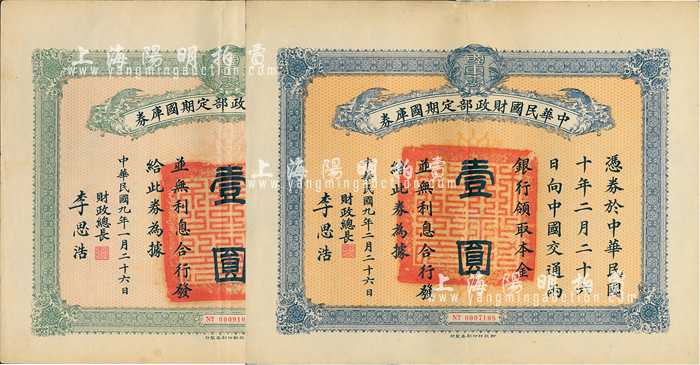 上海陽明拍賣
www.yangmingauction.com
政部定期國庫券
壹圓
並無利息合行發
給此券為據
中華民國九年一月二十六日
財政總長
李思浩
No 000910
上海陽明拍賣
www.yangmingauction.com
中華民國財政部定期國庫券
憑券於中華民國
十年二月二十六
日向中國交通兩
銀行領取本金
壹圓
並無利息合行發
給此券為據
中華民國九年二月二十六日
財政總長
李思浩
No 0007108
財政部印刷局製印
上海陽明拍賣
www.yangmingauction.com